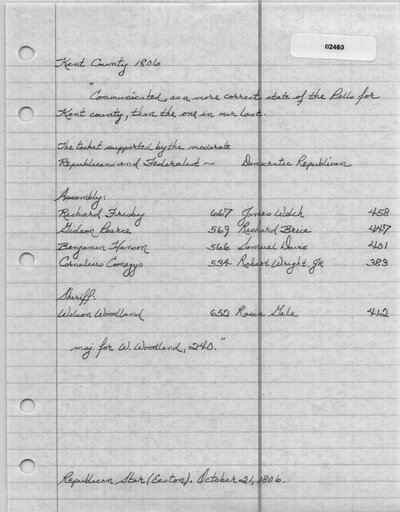 02460
Kent County 1806
"Communicated, as a more correct state of the Polls for
Kent county, than the one in our last.
The ticket supported by the moderate
Republicans and Federalist ~ Democratic Republican
Assembly:
Richard Frisby 667 James Welch 458
Gideon Pearce 569 Richard Brice 447
Benjamin Hanson 566 Samuel Davis 401
Cornelius Comegys 534 Robert Wright JR 383
Sheriff:
Wilson Woodland 652 Rasin Gale 412
maj. for W. Woodland, 240."
Republican Star (Easton). October 21, 1806.